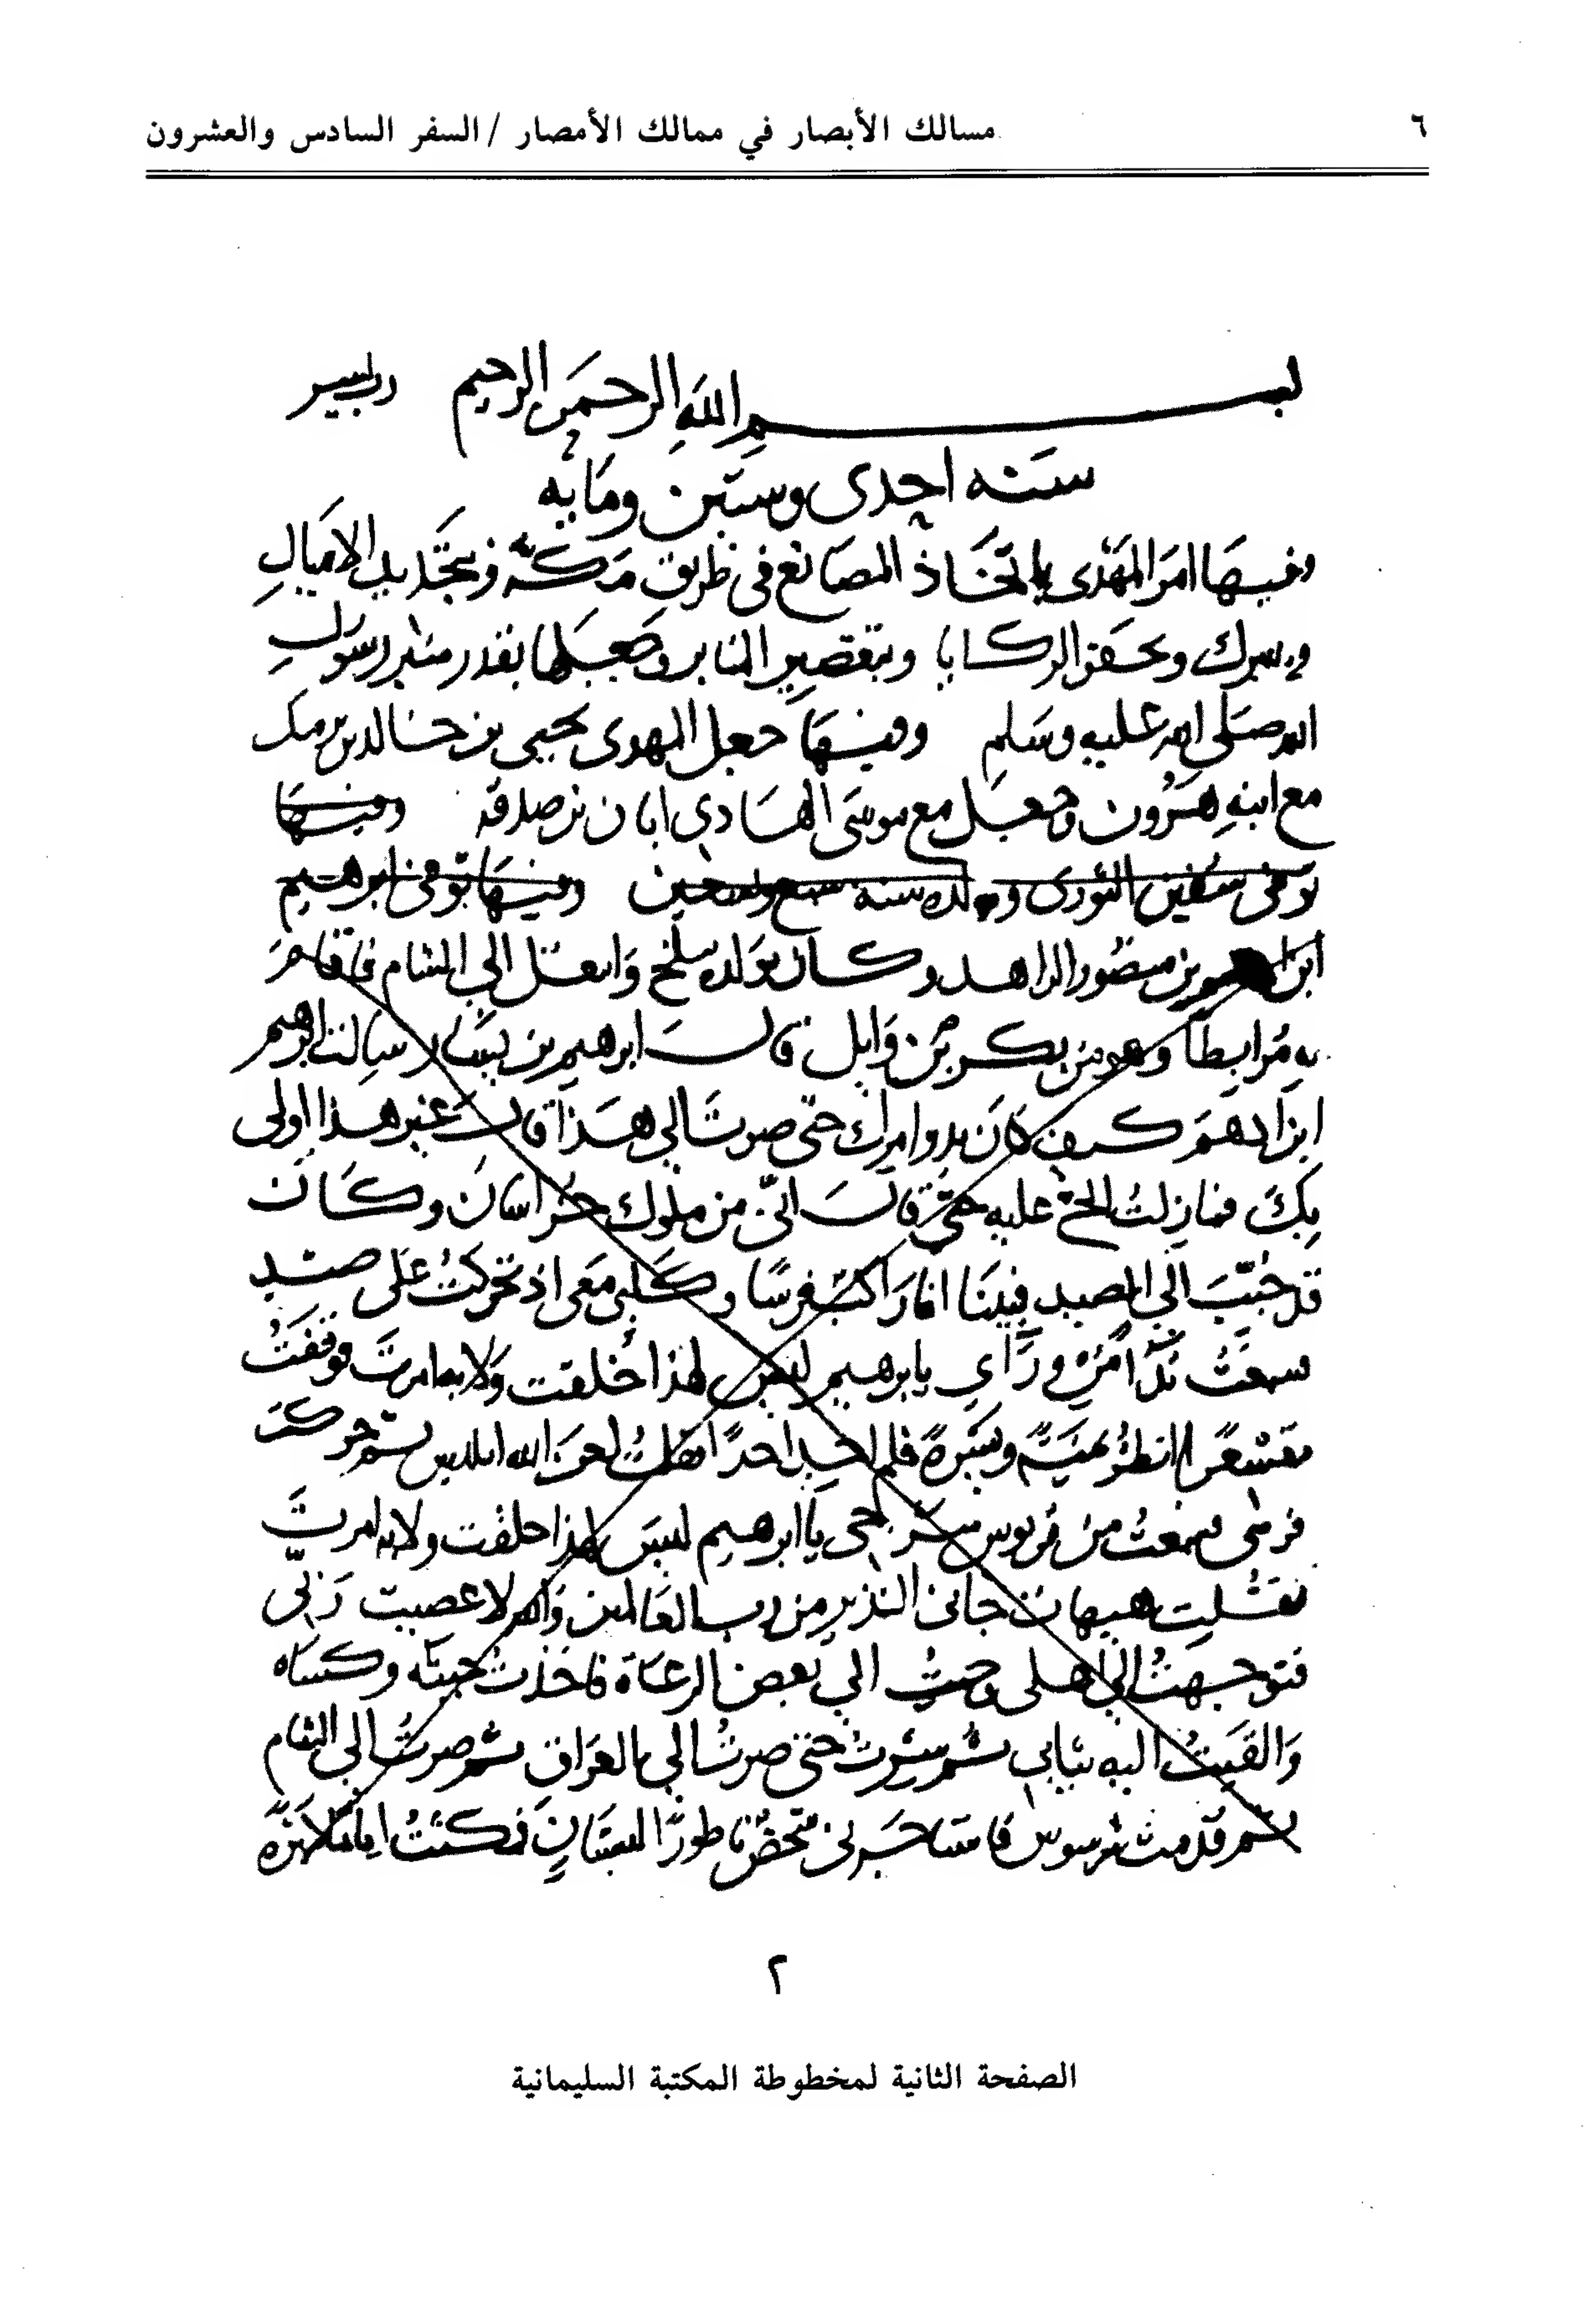 ٦
مسالك الأبصار في ممالك الأمصار / السفر السادس والعشرون
بسم الله الرحمن الرحيم رب يسر
سنه احدى وستين ومايه
وفيها امر المهدى باتخاذ المصانع فى طريق مكة وبتجديد الاميال
والبرك وبحفر الركايا وبتقصير المنابر وجعلها بقدر منبر رسول
الله صلى الله عليه وسلم وفيها جعل المهدى يحيى بن خالد بن برمك
مع ابنه هرون وجعل مع موسى الهادى ابان بن صدقه وفيها
توفى سفين الثورى ومولده سنة سبع وتسعين وفيها توفى ابرهيم
ابن ادهم بن منصور الزاهد وكان مولده ببلخ وانتقل الى الشام فاقام
به مرابطا وهو من بكر بن وايل قال ابرهيم بن يسار سالت ابرهيم
ابن ادهم كيف كان بدو امرك حتى صرت الى هذا قال غير هذا اولى
بك فما زلت الح عليه حتى قال انى من ملوك خراسان وكان
قد حبب الي الصيد فبينا انا راكب فرسا وكلبى معى اذ تحركت على صيد
سمعت ندآ من ورآي يابرهيم ليس لهذا خلقت ولا بهذا امرت فوقفت
مقشعرا انظر يمنة ويسرة فلم ار احدا فقلت لعن الله ابليس ثم حركت
فرسى فسمعت من قربوس سرجى يا ابرهيم ليس لهذا خلقت ولا بهذا امرت
فقلت هيهات جانى النذير من رب العالمين والله لا عصيت ربى
فتوجهت الى اهلى وجيت الي بعض الرعاة فاخذت جبته وكساه
والقيت اليه ثيابي ثم سرت حتى صرت الى العراق ثم صرت الى الشام
ثم قدمت طرسوس فاستاجرنى شخص ناطورا لبستان فمكثت اياما كثيره
٢
الصفحة الثانية لمخطوطة المكتبة السليمانية